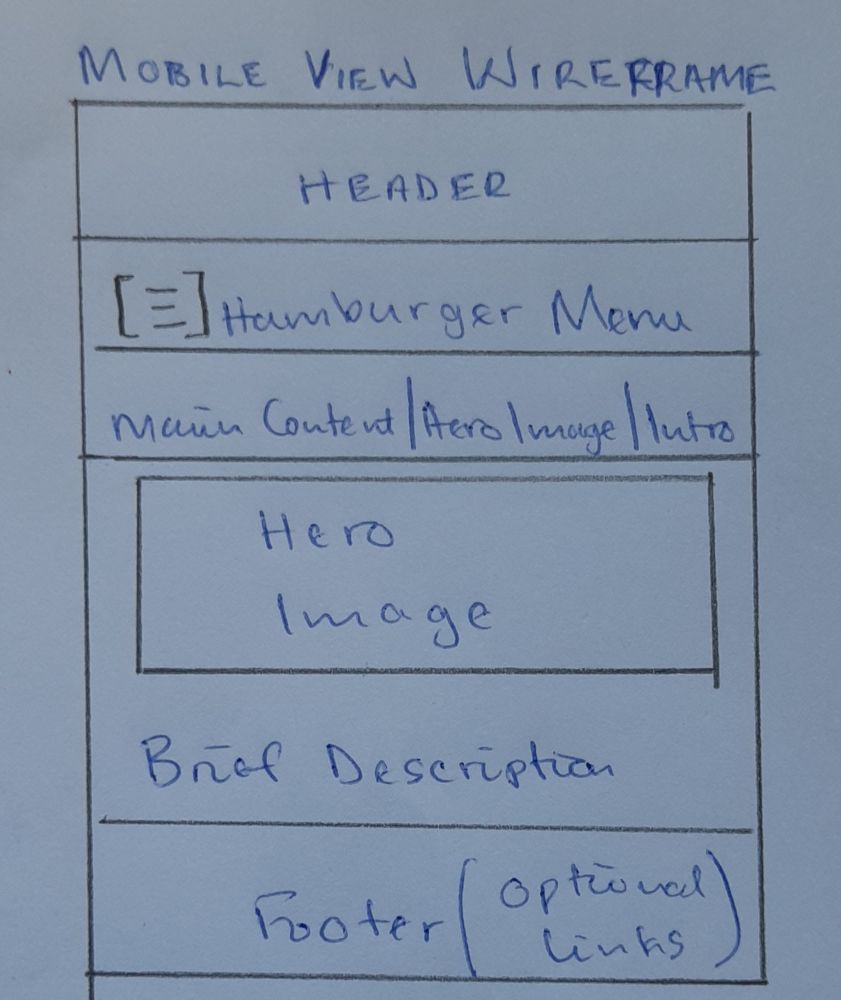 MOBILE VIEW WIREFRAME
HEADER
[☰] Hamburger Menu
Main Content/Hero Image/Intro
Hero
Image
Brief Description
Footer (optional
links)